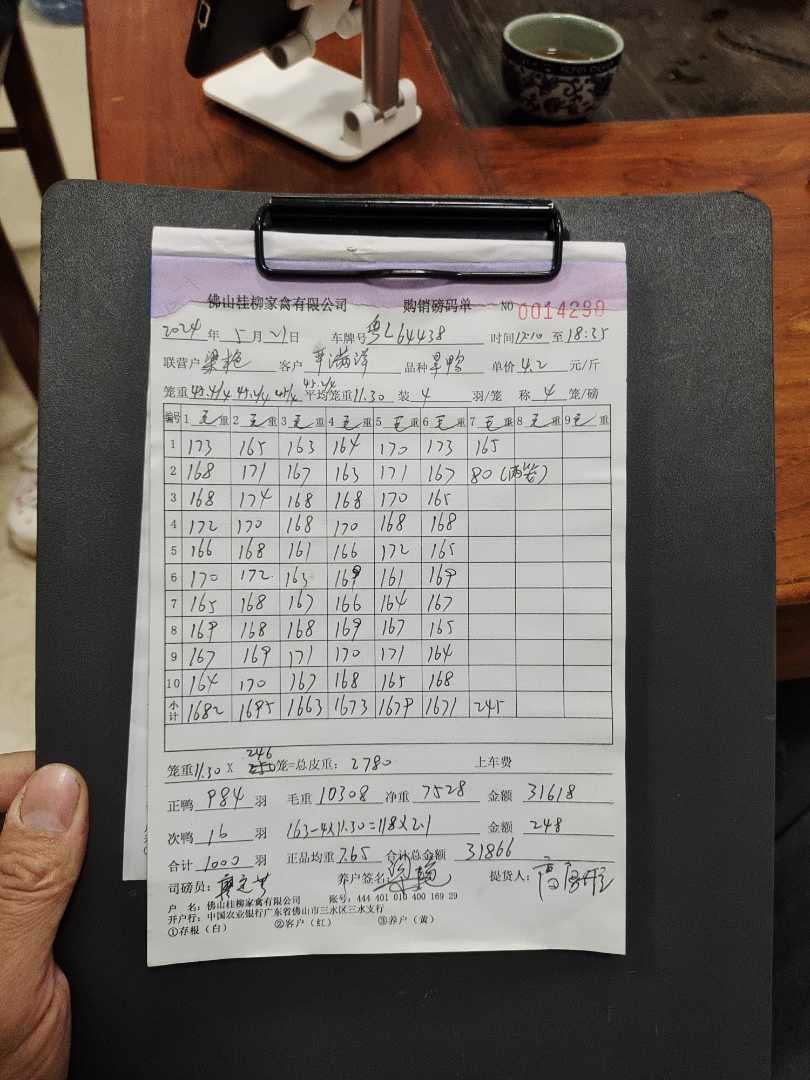 佛山桂柳家禽有限公司 购销磅码单 NO 0014290
2024年5月21日 车牌号 粤L64438 时间 17:10 至 18:35
联营户 梁艳 客户 品种 旱鸭 单价 4.2 元/斤
笼重 45.4/4 45.2/4 45/4 45.2/4 平均笼重 11.30 装 4 羽/笼 称 4 笼/磅
编号 1 毛重 2 毛重 3 毛重 4 毛重 5 毛重 6 毛重 7 毛重 8 毛重 9 毛重
1 173 165 163 164 170 173 165
2 168 171 167 163 171 167 80(两笼)
3 168 174 168 168 170 165
4 172 170 168 170 168 168
5 166 168 161 166 172 165
6 170 172 163 169 161 169
7 165 168 167 166 164 167
8 169 168 168 169 167 165
9 167 169 171 170 171 164
10 164 170 167 168 165 168
小计 1682 1695 1663 1673 1679 1671 245
笼重 11.30 X 246 笼=总皮重: 2780 上车费
正鸭 984 羽 毛重 10308 净重 7528 金额 31618
次鸭 16 羽 163-4×11.30=118×2.1 金额 248
合计 1000 羽 正品均重 7.65 合计总金额 31866
司磅员: 养户签名: 梁艳 提货人:
户 名: 佛山桂柳家禽有限公司 账号: 444 401 010 400 169 29
开户行: 中国农业银行广东省佛山市三水区三水支行
①存根(白) ②客户(红) ③养户(黄)